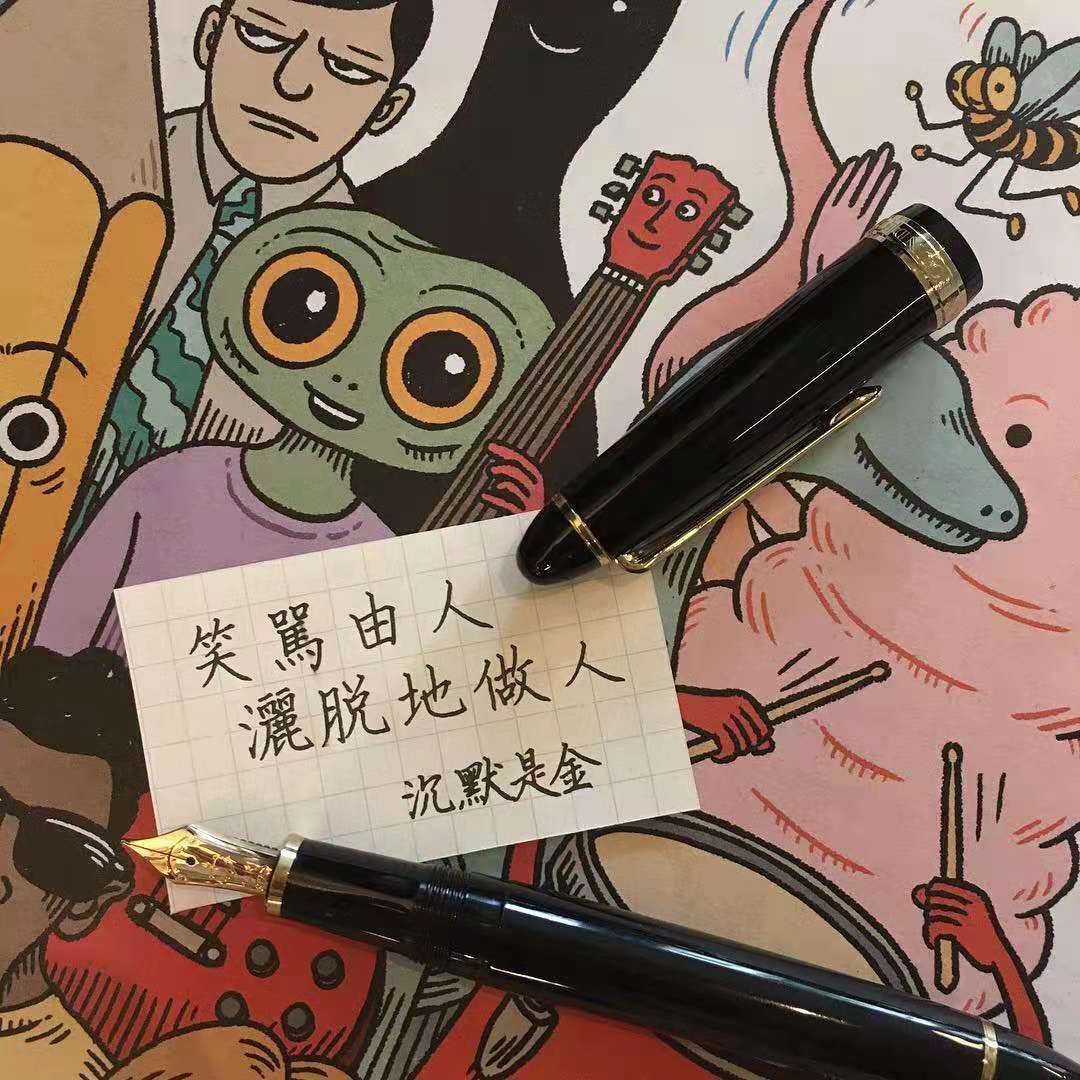 笑罵由人
灑脱地做人
沉默是金